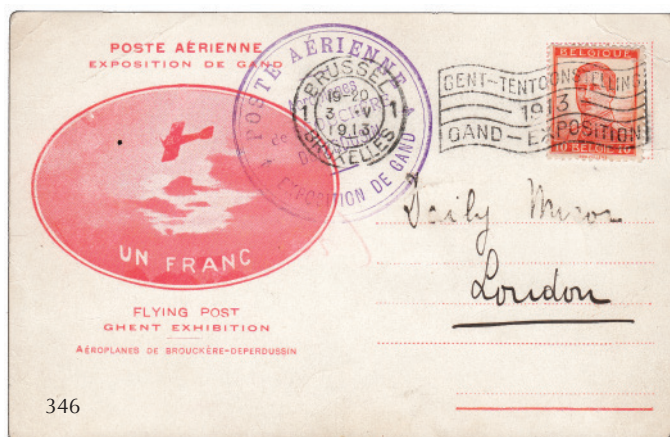 POSTE AÉRIENNE
EXPOSITION DE GAND
UN FRANC
FLYING POST
GHENT EXHIBITION
AÉROPLANES DE BROUCKÈRE-DEPERDUSSIN
346
POSTE AÉRIENNE
EXPOSITION DE GAND
BRUSSEL
1 19-20 1
3 V
1913
BRUXELLES
GENT-TENTOONSTELLING
1913
GAND-EXPOSITION
BELGIQUE
10 BELGIË 10
Daily Miror
London